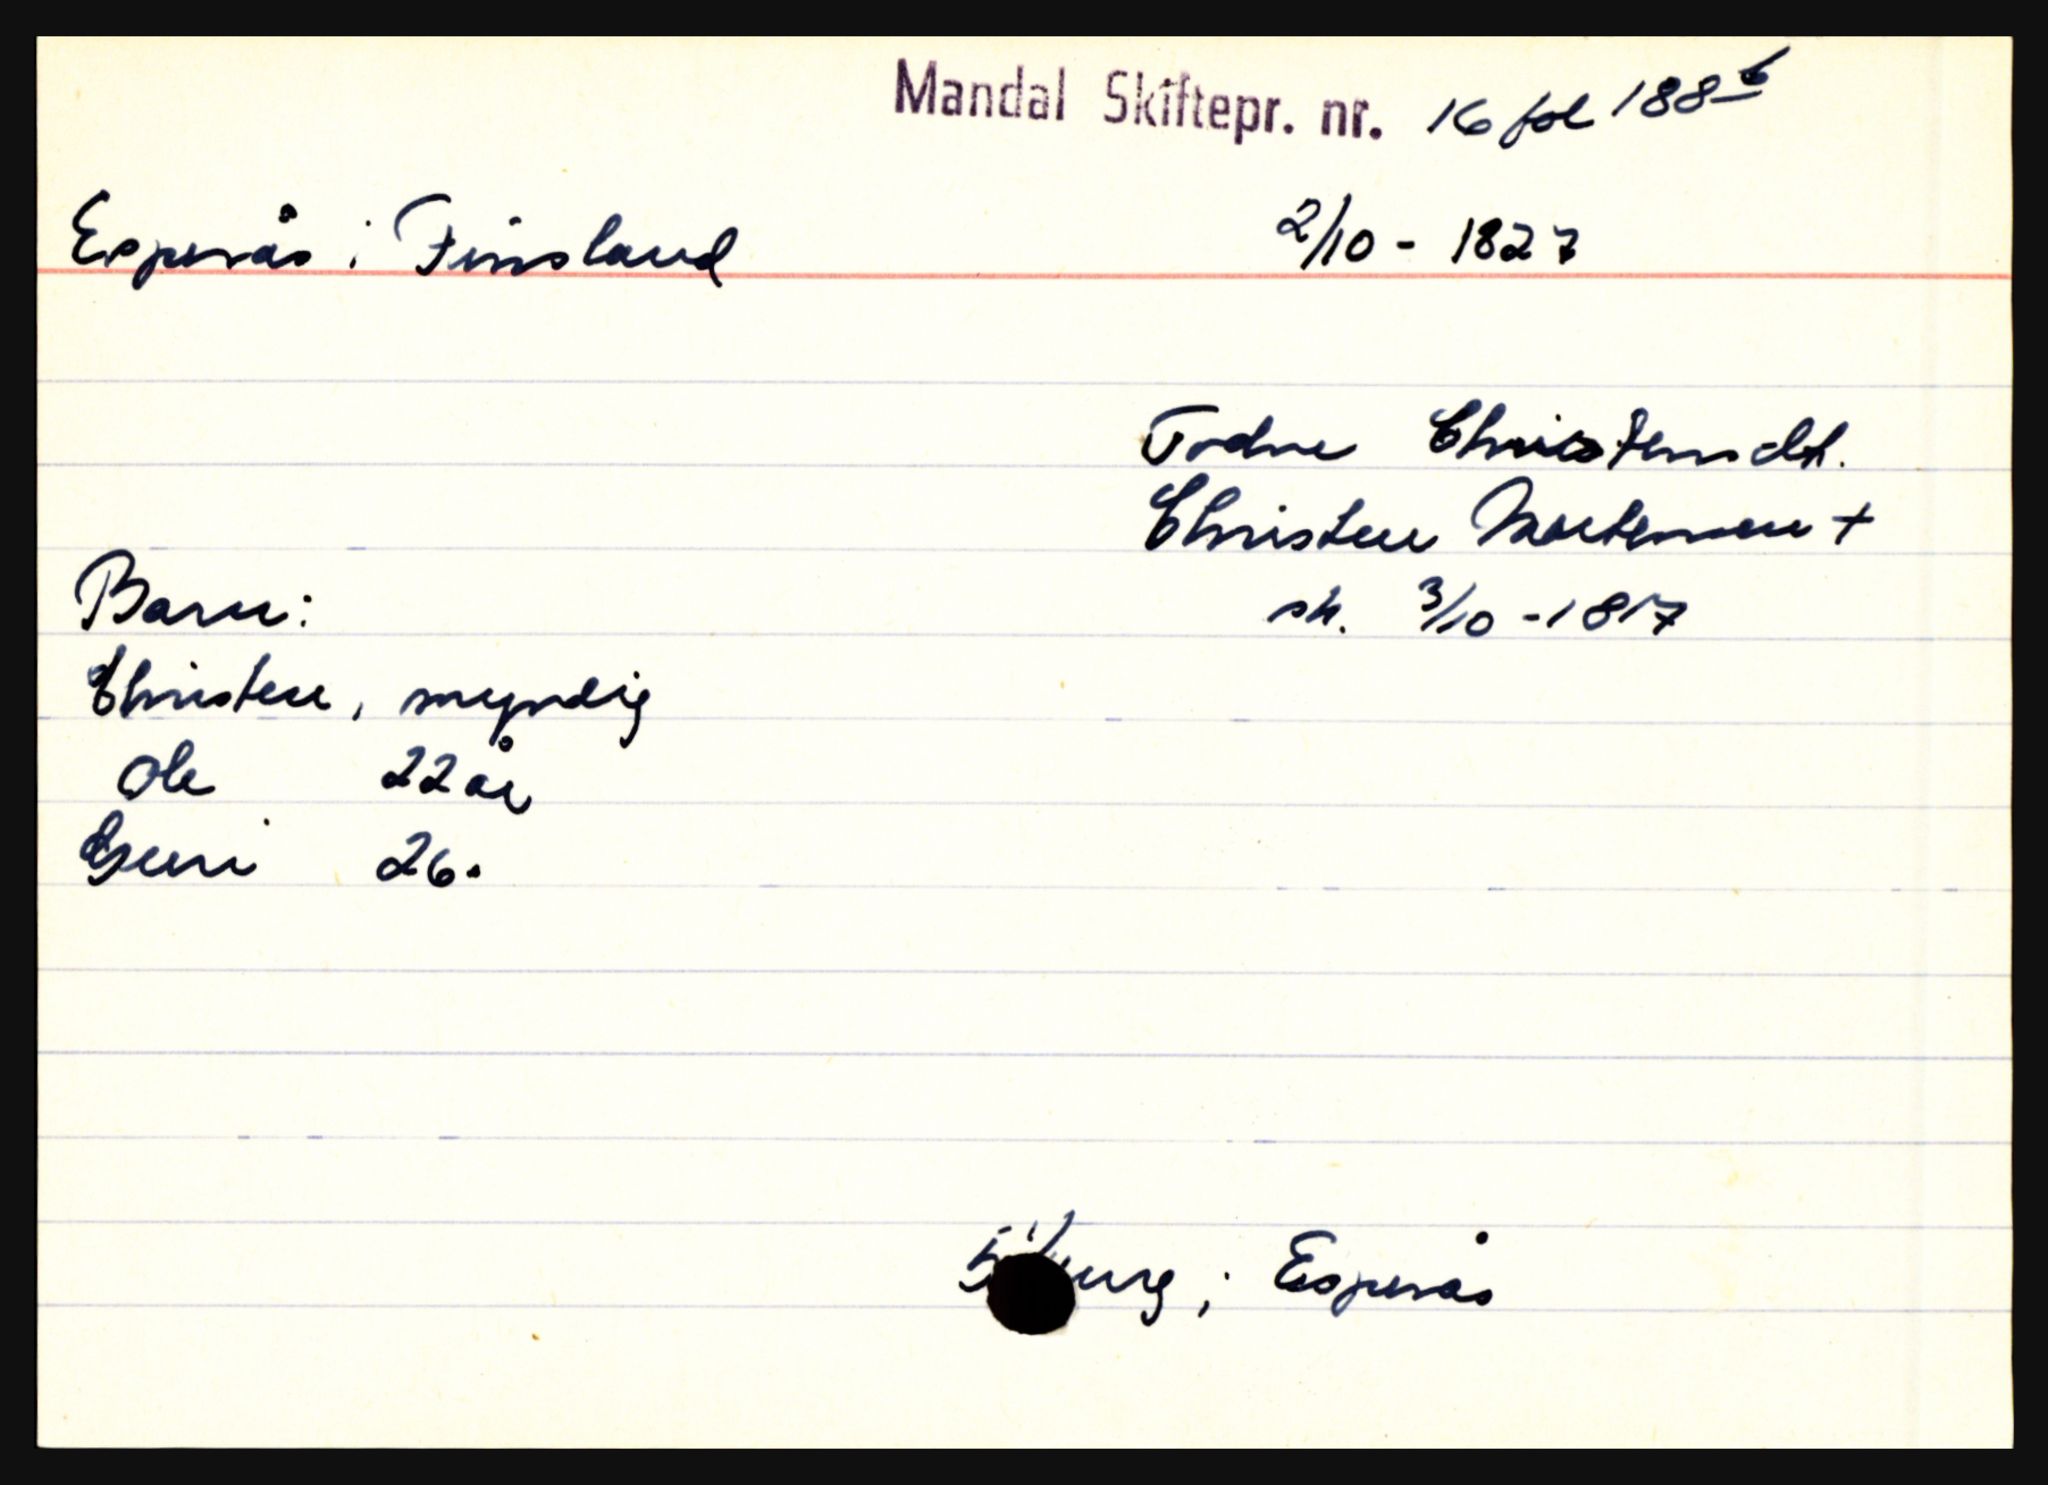 Mandal Skiftepr. nr. 16 fol 188 b
Esperås i Finsland 2/10 - 1827
Todne Christensdt.
Christen Mortensen +
sk. 3/10 - 1817
Barn:
Christen, myndig
Ole 22 år
Guri 26.
i Esperås